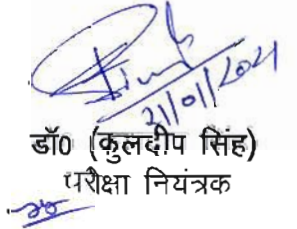 21/01/2021
डॉ0 (कुलदीप सिंह)
परीक्षा नियंत्रक